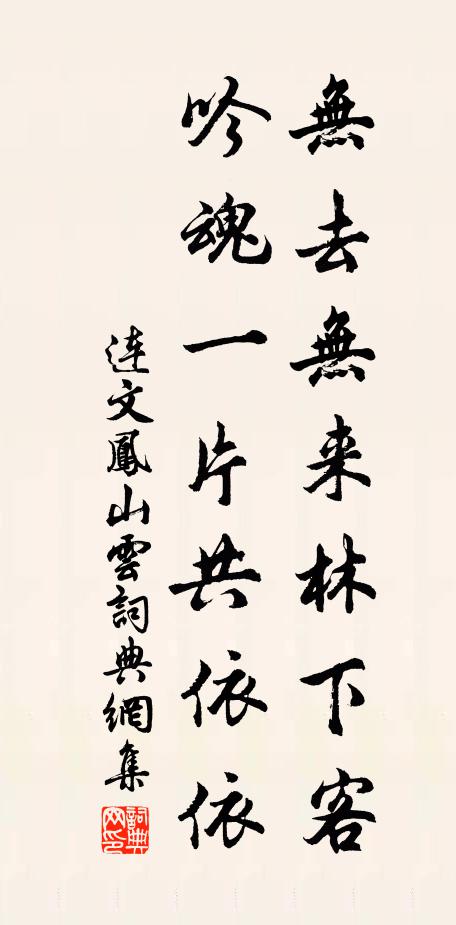 無去無来林下客
吟魂一片共依依
連文鳳山雲詞典網集
詞典網印